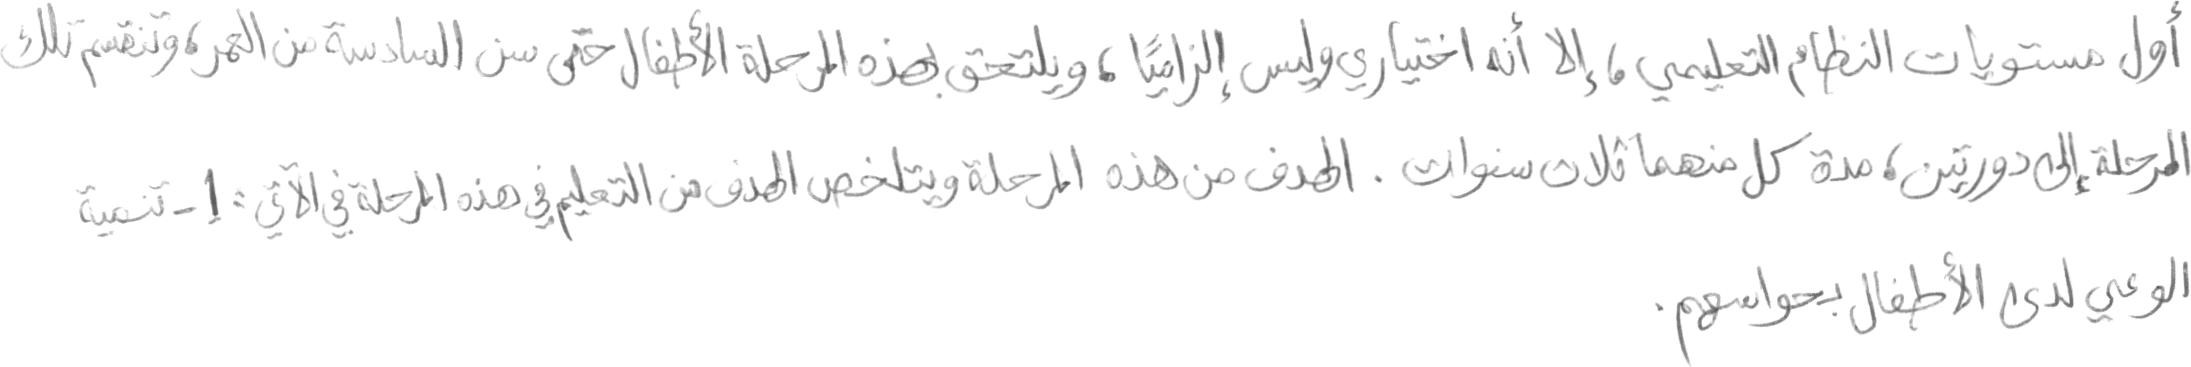 أول مستويات النظام التعليمي، إلا أنه اختياري وليس إلزاميًا، ويلتحق بهذه المرحلة الأطفال حتى سن السادسة من العمر، وتنقسم تلك
المرحلة إلى دورتين، مدة كل منهما ثلاث سنوات. الهدف من هذه المرحلة ويتلخص الهدف من التعليم في هذه المرحلة في الآتي: 1- تنمية
الوعي لدى الأطفال بحواسهم.